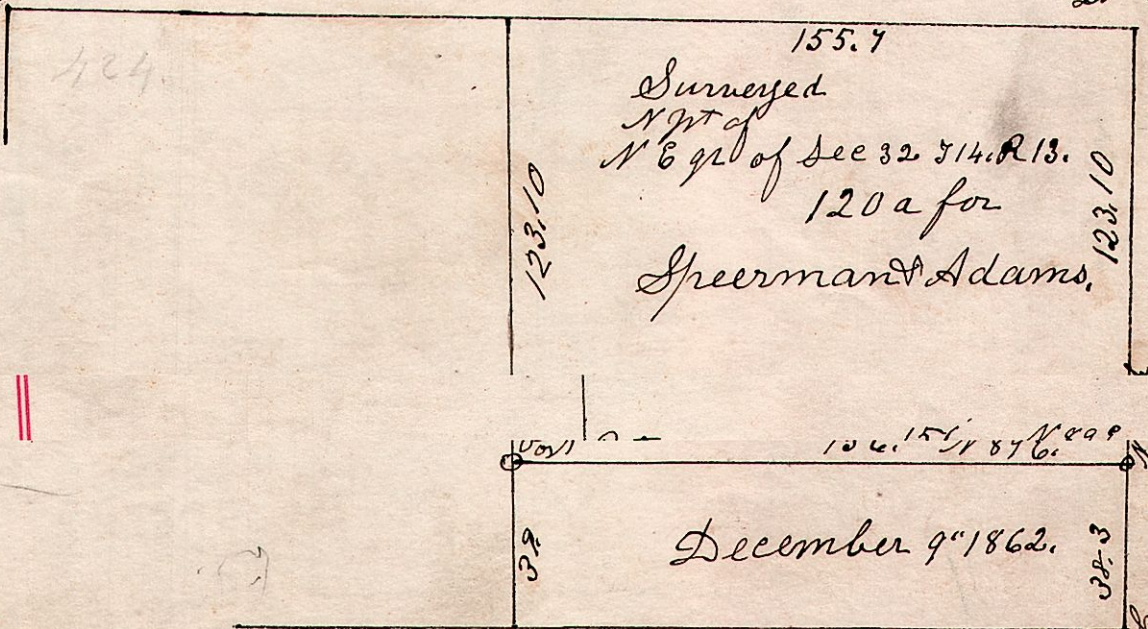 424.
155.7
Surveyed
N pt of
N E qr of Sec 32 T14. R13.
120 a for
Speerman & Adams.
123.10
123.10
December 9" 1862.
38.3